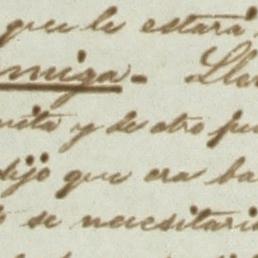 que le estará
miga - Lle
y de otro pu
dijo que era ba
se necesitaria